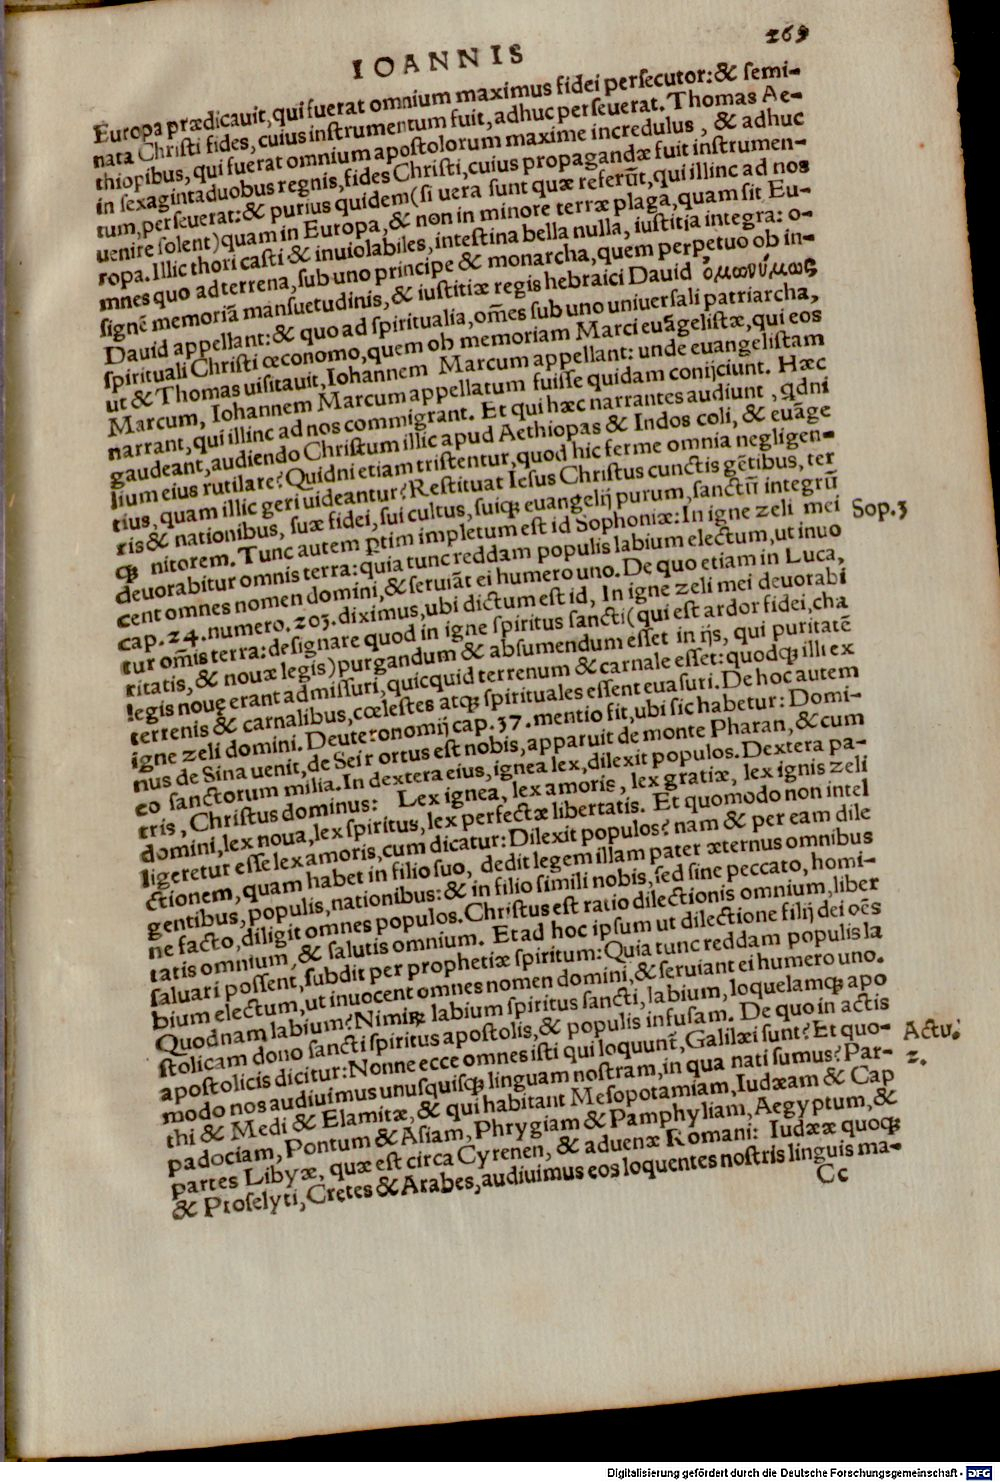 IOANNIS
269
Europa prædicauit,qui fuerat omnium maximus fidei perſecutor:& ſemi-
nata Chriſti fides, cuius inſtrumentum fuit, adhuc perſeuerat. Thomas Ae-
thiopibus, qui fuerat omnium apoſtolorum maxime incredulus , & adhuc
in ſexagintaduobus regnis,fides Chriſti,cuius propagandæ fuit inſtrumen-
tum,perſeuerat:& purius quidem(ſi uera ſunt quæ referūt,qui illinc ad nos
uenire ſolent)quam in Europa,& non in minore terræ plaga,quam ſit Eu-
ropa. Illic thori caſti & inuiolabiles,inteſtina bella nulla, iuſtitia integra: o-
mnes quo ad terrena,ſub uno principe & monarcha,quem perpetuo ob in-
ſignē memoriā manſuetudinis,& iuſtitiæ regis hebraici Dauid ὁμωνύμως
Dauid appellant:& quo ad ſpiritualia,oм̄es ſub uno uniuerſali patriarcha,
ſpirituali Chriſti œconomo,quem ob memoriam Marci euāgeliſtæ,qui eos
ut & Thomas uiſitauit,Iohannem Marcum appellant: unde euangeliſtam
Marcum, Iohannem Marcum appellatum fuiſſe quidam conijciunt. Hæc
narrant,qui illinc ad nos commigrant. Et qui hæc narrantes audiunt , qdni
gaudeant,audiendo Chriſtum illic apud Aethiopas & Indos coli, & euāge
lium eius rutilare? Quidni etiam triſtentur,quod hic ferme omnia negligen-
tius, quam illic geri uideantur? Reſtituat Ieſus Chriſtus cunctis gētibus, ter
ris & nationibus, ſuæ fidei, ſui cultus, ſuiqꝫ euangelij purum,ſanctū integrū
qꝫ nitorem. Tunc autem ꝑtim impletum eſt id Sophoniæ:In igne zeli mei
deuorabitur omnis terra:quia tunc reddam populis labium electum,ut inuo
cent omnes nomen domini,&ſeruiāt ei humero uno. De quo etiam in Luca,
cap.24.numero.203.diximus,ubi dictum eſt id, In igne zeli mei deuorabi
tur om̄is terra:deſignare quod in igne ſpiritus ſancti(qui eſt ardor fidei,cha
ritatis, & nouæ legis)purgandum & abſumendum eſſet in ijs, qui puritatē
legis nouę erant admiſſuri,quicquid terrenum & carnale eſſet:quodqꝫ illi ex
terrenis & carnalibus,cœleſtes atqꝫ ſpirituales eſſent euaſuri. De hoc autem
igne zeli domini. Deuteronomij cap.37.mentio fit,ubi ſic habetur: Domi-
nus de Sina uenit,de Seir ortus eſt nobis,apparuit de monte Pharan,& cum
eo ſanctorum milia.In dextera eius,ignea lex,dilexit populos. Dextera pa-
tris , Chriſtus dominus: Lex ignea, lex amoris , lex gratiæ, lex ignis zeli
domini,lex noua,lex ſpiritus,lex perfectæ libertatis. Et quomodo non intel
ligeretur eſſe lex amoris,cum dicatur: Dilexit populos? nam & per eam dile
ctionem,quam habet in filio ſuo, dedit legem illam pater æternus omnibus
gentibus, populis,nationibus:& in filio ſimili nobis,ſed ſine peccato, homi-
ne facto,diligit omnes populos. Chriſtus eſt ratio dilectionis omnium,liber
tatis omnium, & ſalutis omnium. Et ad hoc ipſum ut dilectione filij dei oēs
ſaluari poſſent,ſubdit per prophetiæ ſpiritum: Quia tunc reddam populis la
bium electum,ut inuocent omnes nomen domini,&ſeruiant ei humero uno.
Quodnam labium? Nimirꝫ labium ſpiritus ſancti,labium,loquelamqꝫ apo
ſtolicam dono ſancti ſpiritus apoſtolis,& populis infuſam. De quo in actis
apoſtolicis dicitur:Nonne ecce omnes iſti qui loquunt̄, Galilæi ſunt? Et quo-
modo nos audiuimus unuſquiſqꝫ linguam noſtram,in qua nati ſumus? Par-
thi & Medi & Elamitæ, & qui habitant Meſopotamiam,Iudæam & Cap
padociam, Pontum & Aſiam, Phrygiam & Pamphyliam, Aegyptum,&
partes Libyæ, quæ eſt circa Cyrenen, & aduenæ Romani: Iudææ quoqꝫ
& Proſelyti, Cretes & Arabes,audiuimus eos loquentes noſtris linguis ma-
Cc
Sop.3
Actu.
2.
Digitalisierung gefördert durch die Deutsche Forschungsgemeinschaft - DFG